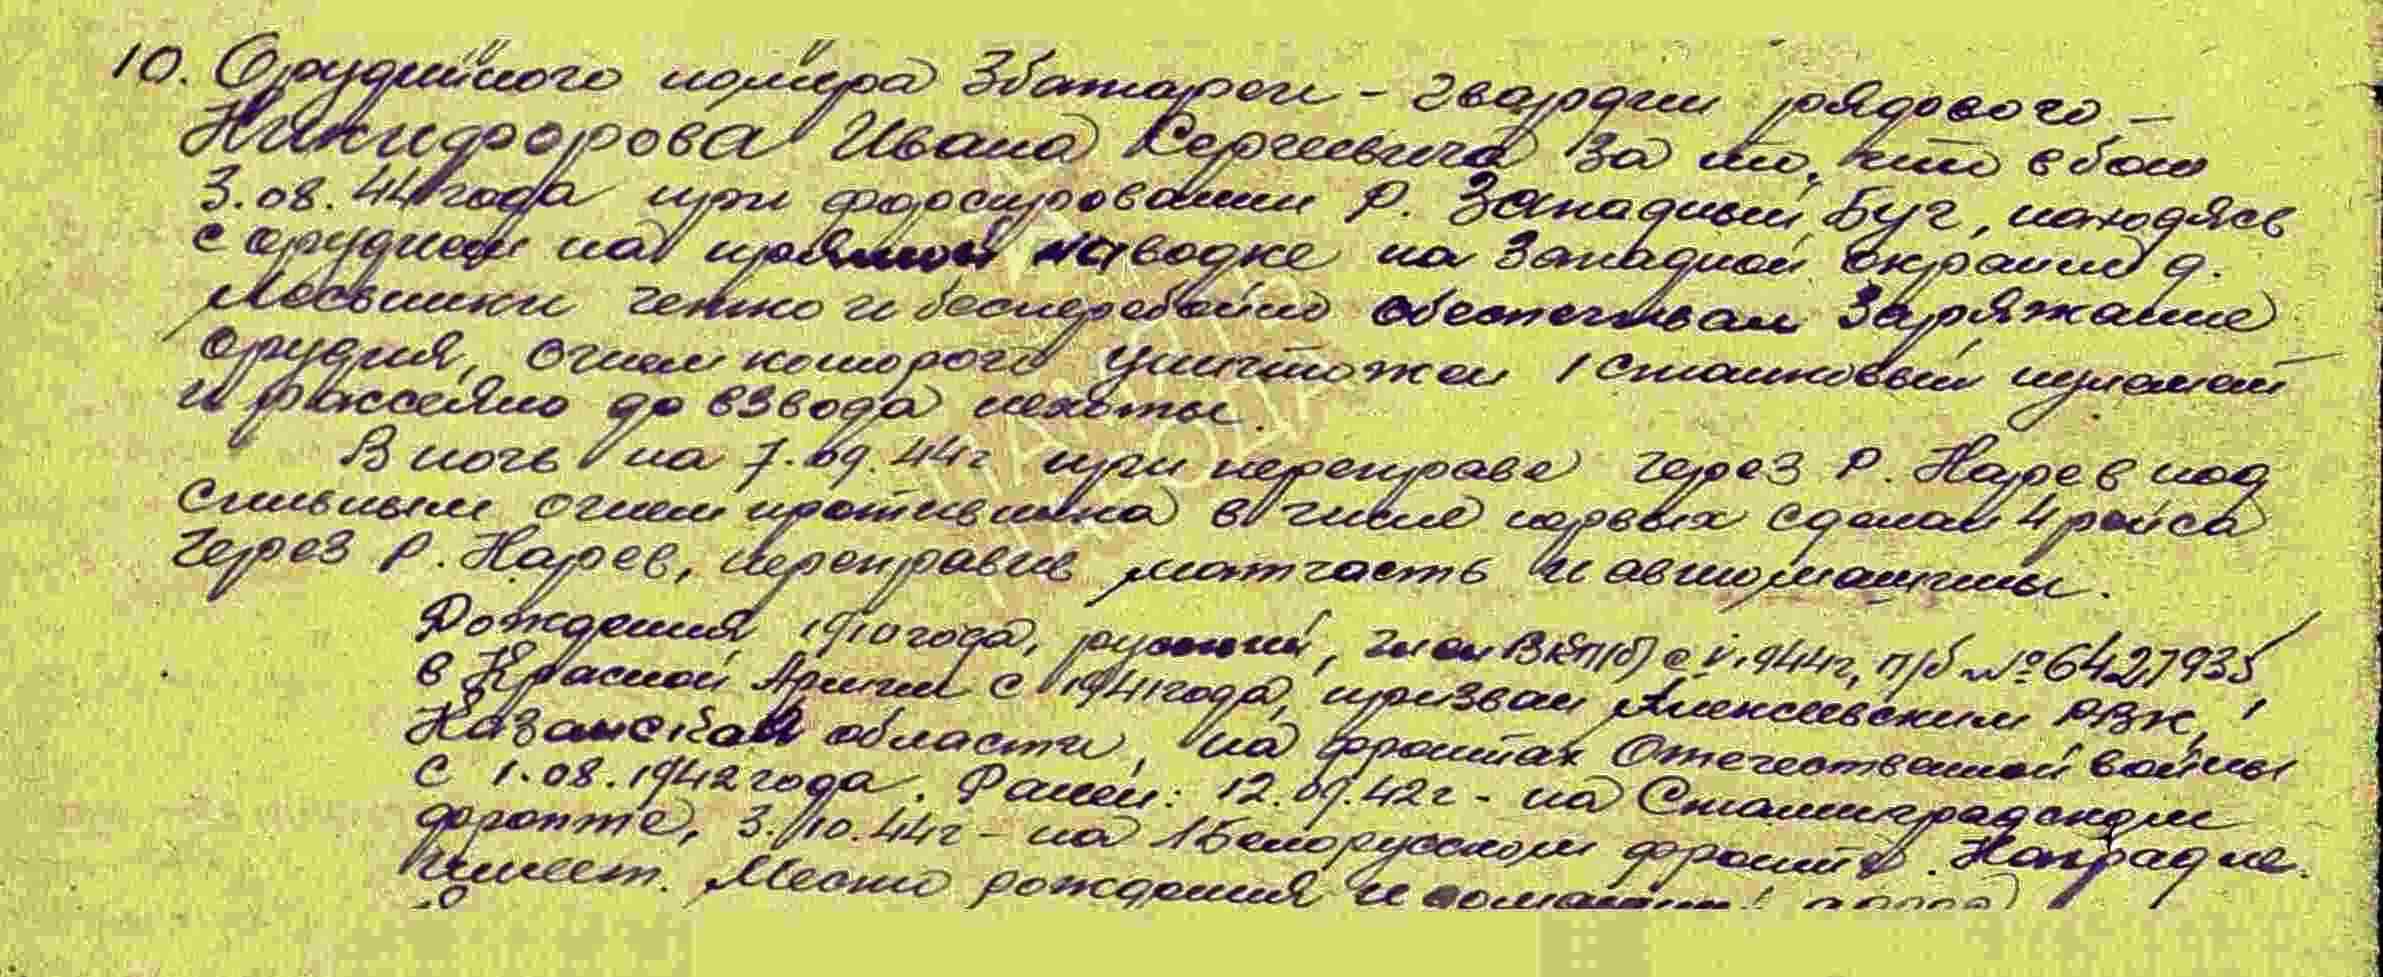 10. Орудийного номера 3 батареи - гвардии рядового -
Никифорова Ивана Сергеевича за то, что в бою
3.08.44 года при форсировании р. Западный Буг, находясь
с орудием на прямой наводке на Западной окраине д.
четко и бесперебойно обеспечивал заряжание
орудия, огнем которого уничтожен 1 станковый пулемет
и рассеяно до взвода пехоты.
В ночь на 7.09.44г при переправе через р. Нарев под
сильным огнем противника в числе первых сделал 4 рейса
через р. Нарев, переправив матчасть и автомашины.
Рождения 1910 года, русский, член ВКП(б) с 1944г, п/б № 6427935,
в Красной Армии с 1941 года, призван Алексеевским РВК,
Казанской области, на фронтах Отечественной войны
с 1.08.1942 года. Ранен: 12.09.42г - на Сталинградском
фронте, 3.10.44г - на 1 Белорусском фронте. Наград не
имеет. Место рождения и
ПАМЯТЬ
НАРОДА